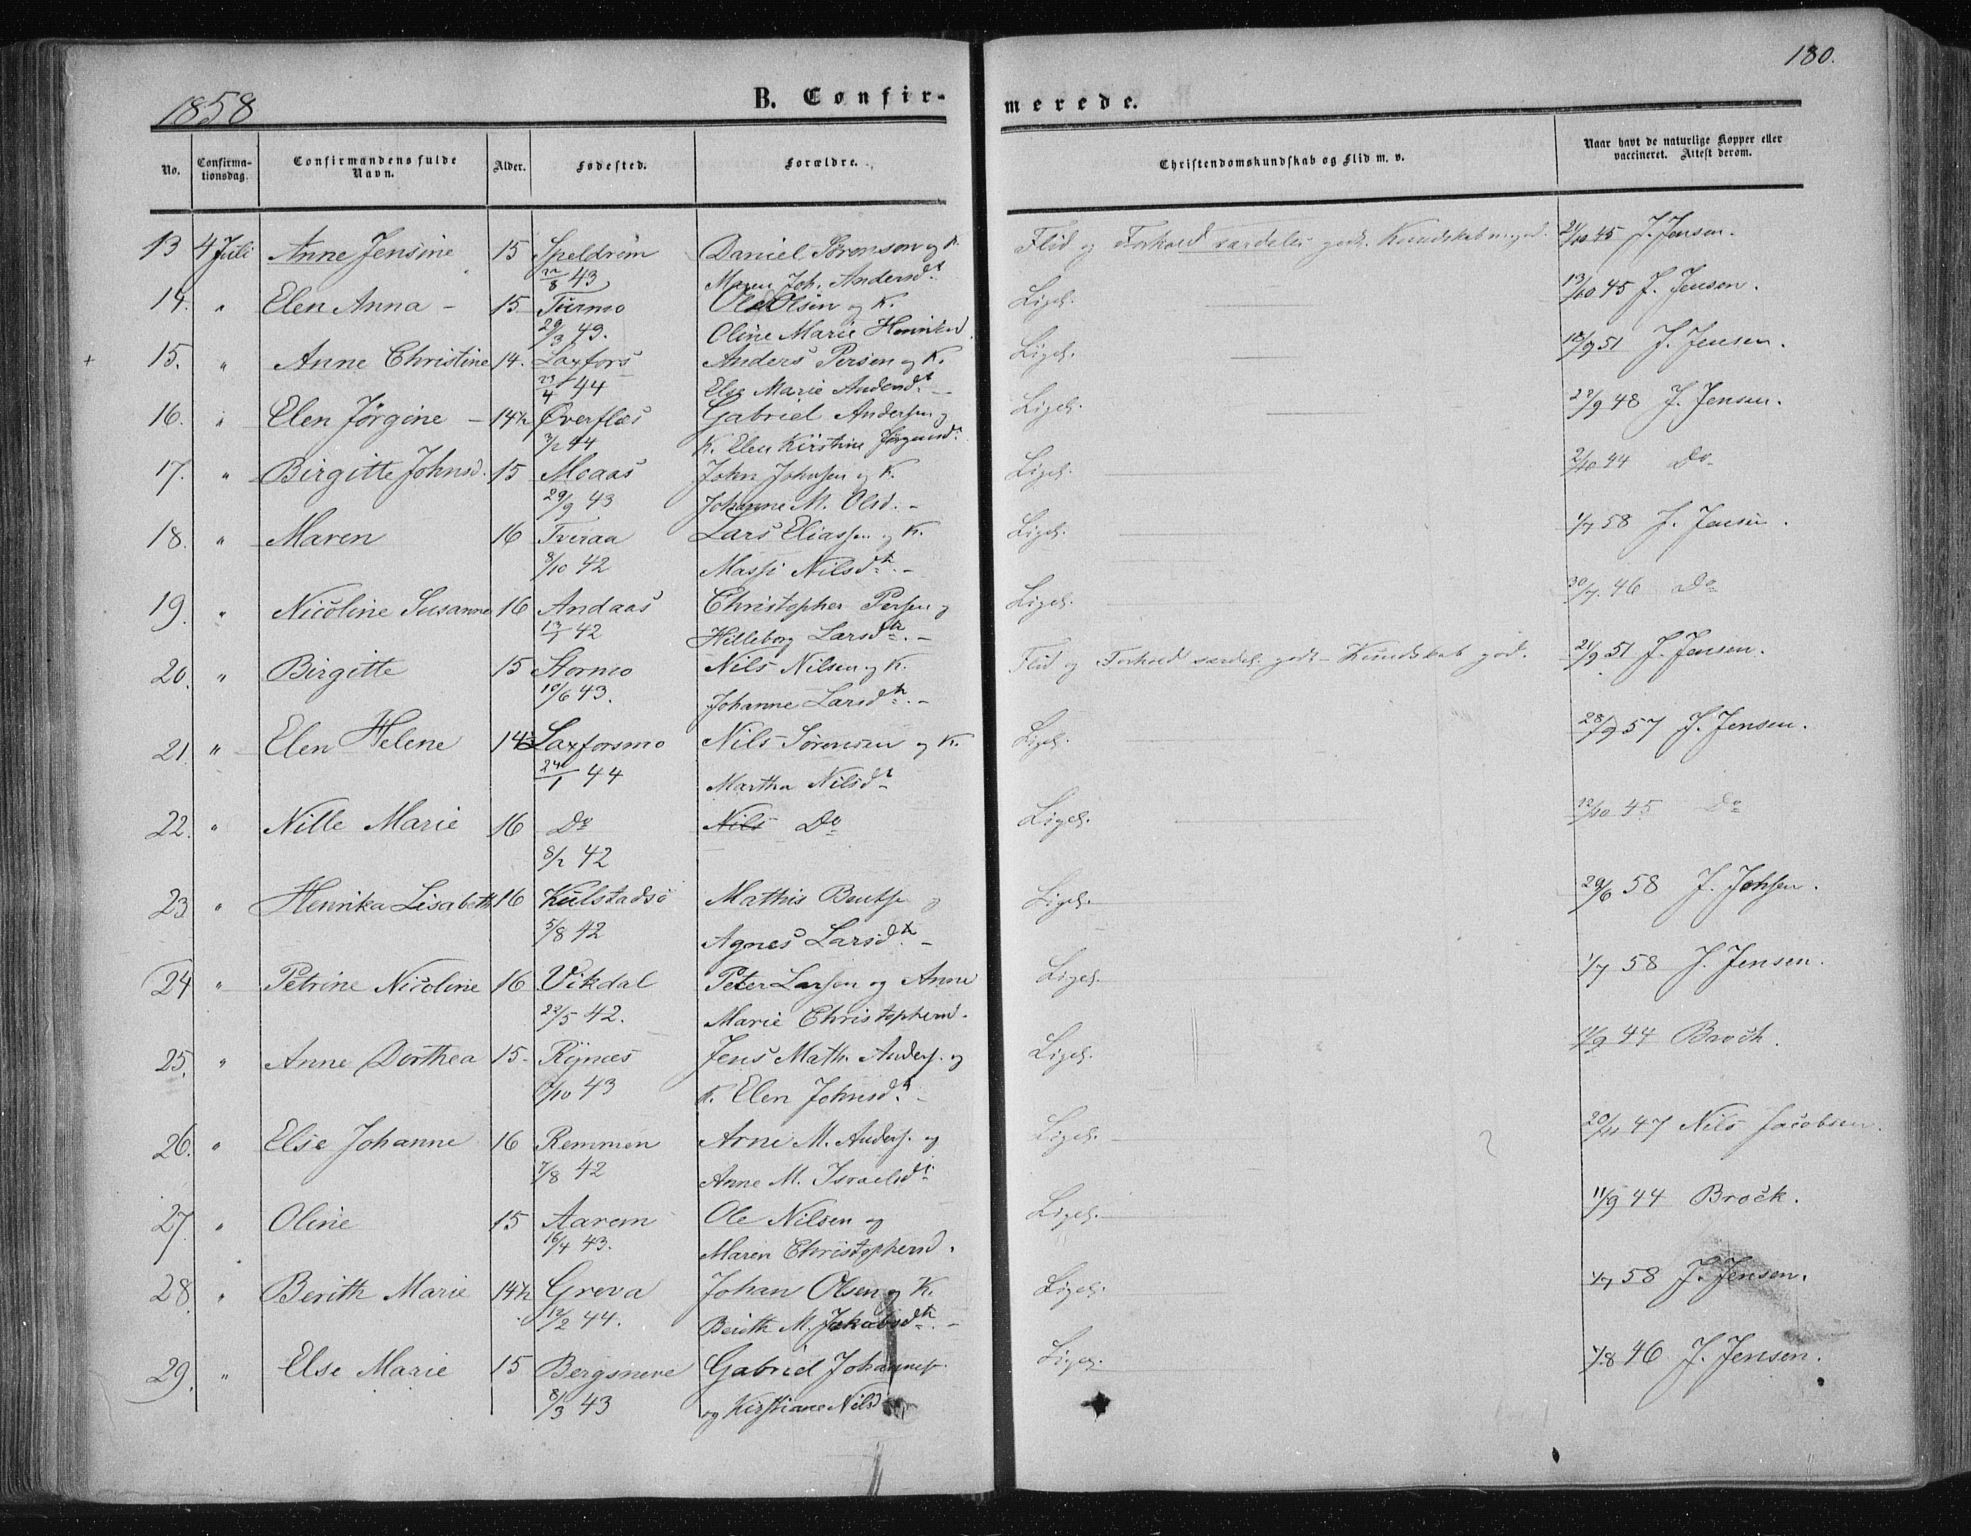 180.
1858
B. Confir-
merede.
No.
Confirma-
tionsdag.
Confirmandens fulde
Navn.
Alder.
Fødested.
Forældre.
Christendomskundskab og Flid m. v.
Naar havt de naturlige Kopper eller
vaccineret. Attest derom.
13 4 Juli Anne Jensine 15 Speldrem Daniel Sørensen og K. Flid og Forhold særdeles godt. Kundskab meget 21/10 45 J. Jensen.
22/8 43 Maren Joh. Andersdt
14. " Elen Anna - 15 Turmo Ole Olsen og K. Ligel. 13/10 45 J. Jensen.
29/3 43. Oline Marie Henriksd
15. " Anne Christine 14. Laxfors Anders Persen og K. Ligel. 18/9 51 J. Jensen.
23/4 44 Else Marie Andersdt
16. " Elen Jørgine - 14½ Øverflæs Gabriel Andersen og Ligel. 22/9 48 J. Jensen.
3/2 44 K. Elen Kirstine Jørgensd.
17. " Birgitte Johnsd. 15 Moaas John Johnsen og K. Ligel. 2/10 44 Do
29/9 43 Johanne M. Olsd. -
18. " Maren 16 Tveraa Lars Eliassen og K. Ligel. 1/7 58 J. Jensen.
8/10 42 Massi Nilsdt. -
19. " Nicoline Susanne 16 Andaas Christopher Persen og Ligel. 30/7 46 Do
13/1 42 Hilleborg Larsdt. -
20. " Birgitte 15 Stormo Nils Nilsen og K. Flid og Forhold særdel. godt - Kundskab god. 21/9 51 J. Jensen.
10/6 43. Johanne Larsdt. -
21. " Elen Helene 14½ Laxforsmo Nils Sørensen og K. Ligel. 28/9 57 J. Jensen.
24/1 44 Martha Nilsdt
22. " Nille Marie 16 Do Do Ligel. 12/10 45 Do
8/2 42
23 " Henrika Lisabeth 16 Kulstadsø Mathis Bentsen og Ligel. 29/6 58 J. Johsen.
5/8 42 Agnes Larsdt. -
24 " Petrine Nicoline 16 Vikdal Peter Larsen og Anne Ligel. 1/7 58 J. Jensen.
22/5 42. Marie Christophersd.
25. " Anne Dorthea 15 - Rynes Jens Math. Anders. og Ligel. 11/9 44 Broch.
/10 43 K. Elen Johnsdt. -
26. " Else Johanne 16 Remmen Arne M. Anders. og Ligel. 20/11 47 Nils Jacobsen.
7/8 42 Anne M. Israelsdt
27. " Oline 15 Aarem Ole Nilsen og Ligel. 11/9 44 Brock.
16/4 43. Maren Christophersd.
28. " Berith Marie 14½ Greva Johan Olsen og K. Ligel. 1/7 58 J. Jensen.
12/2 44. Berith M. Jakobsdt. -
29. " Else Marie 15 Bergsneve Gabriel Johannes. Ligel. /8 46 J. Jensen.
8/3 43 og Kirstiane Nilsd